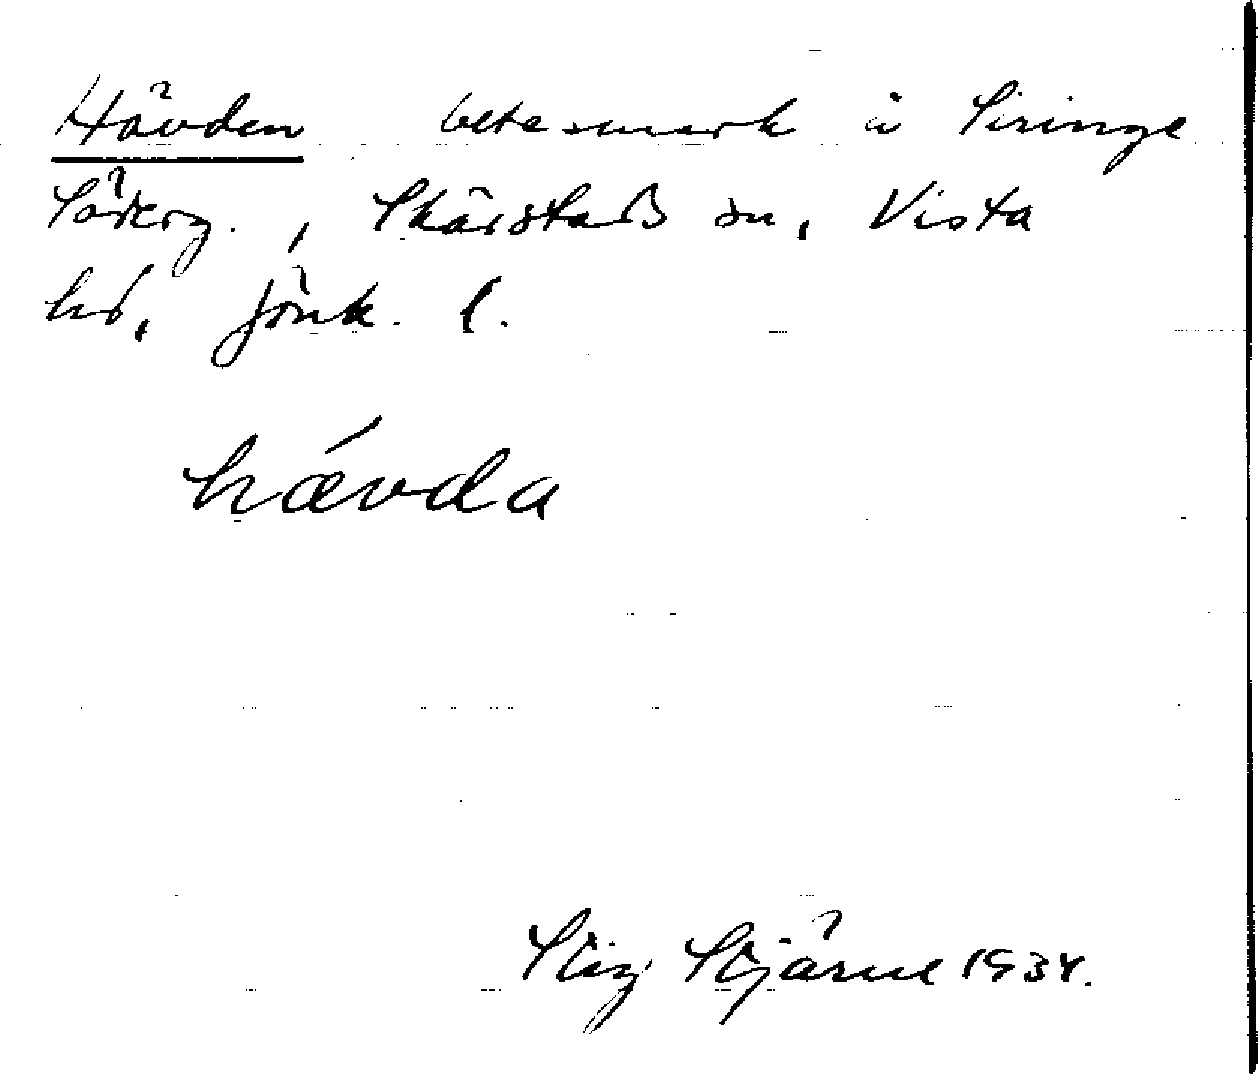 Hävden betesmark å Siringe
Söderg., Skärstads sn, Vista
hd, Jönk. l.
hǽvda
Stig Stjärne 1934.